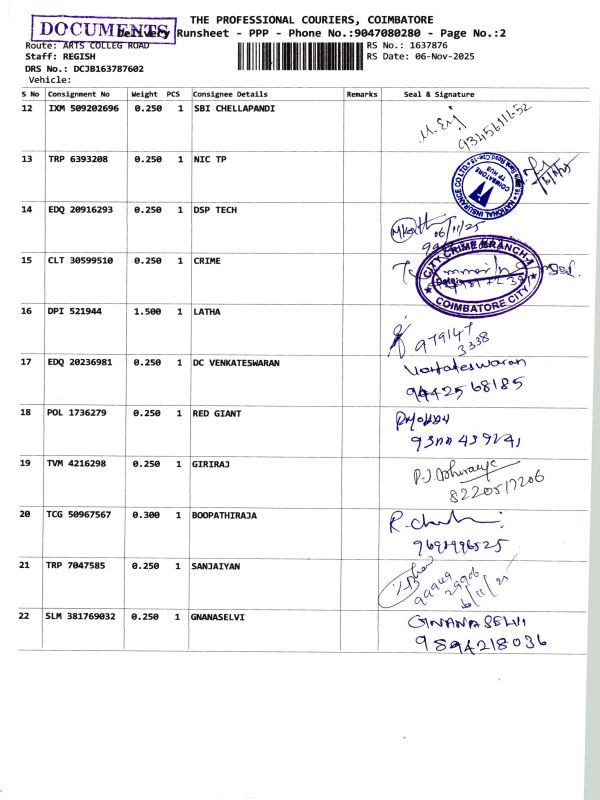 THE PROFESSIONAL COURIERS, COIMBATORE
DOCUMENTS
Delivery Runsheet - PPP - Phone No.:9047080280 - Page No.:2
Route: ARTS COLLEG ROAD
RS No.: 1637876
Staff: REGISH
RS Date: 06-Nov-2025
DRS No.: DCJB163787602
Vehicle:
S No Consignment No Weight PCS Consignee Details Remarks Seal & Signature
12 IXM 509202696 0.250 1 SBI CHELLAPANDI
13 TRP 6393208 0.250 1 NIC TP
NATIONAL INSURANCE CO LTD
COIMBATORE
TP HUB
14 EDQ 20916293 0.250 1 DSP TECH
06/11/25
15 CLT 30599510 0.250 1 CRIME
CITY CRIME BRANCH-1
COIMBATORE CITY
16 DPI 521944 1.500 1 LATHA
979147
3338
17 EDQ 20236981 0.250 1 DC VENKATESWARAN
9442568185
18 POL 1736279 0.250 1 RED GIANT
19 TVM 4216298 0.250 1 GIRIRAJ
8220517206
20 TCG 50967567 0.300 1 BOOPATHIRAJA
21 TRP 7047585 0.250 1 SANJAIYAN
99949
29906
22 SLM 381769032 0.250 1 GNANASELVI
GNANASELVI
9894218036